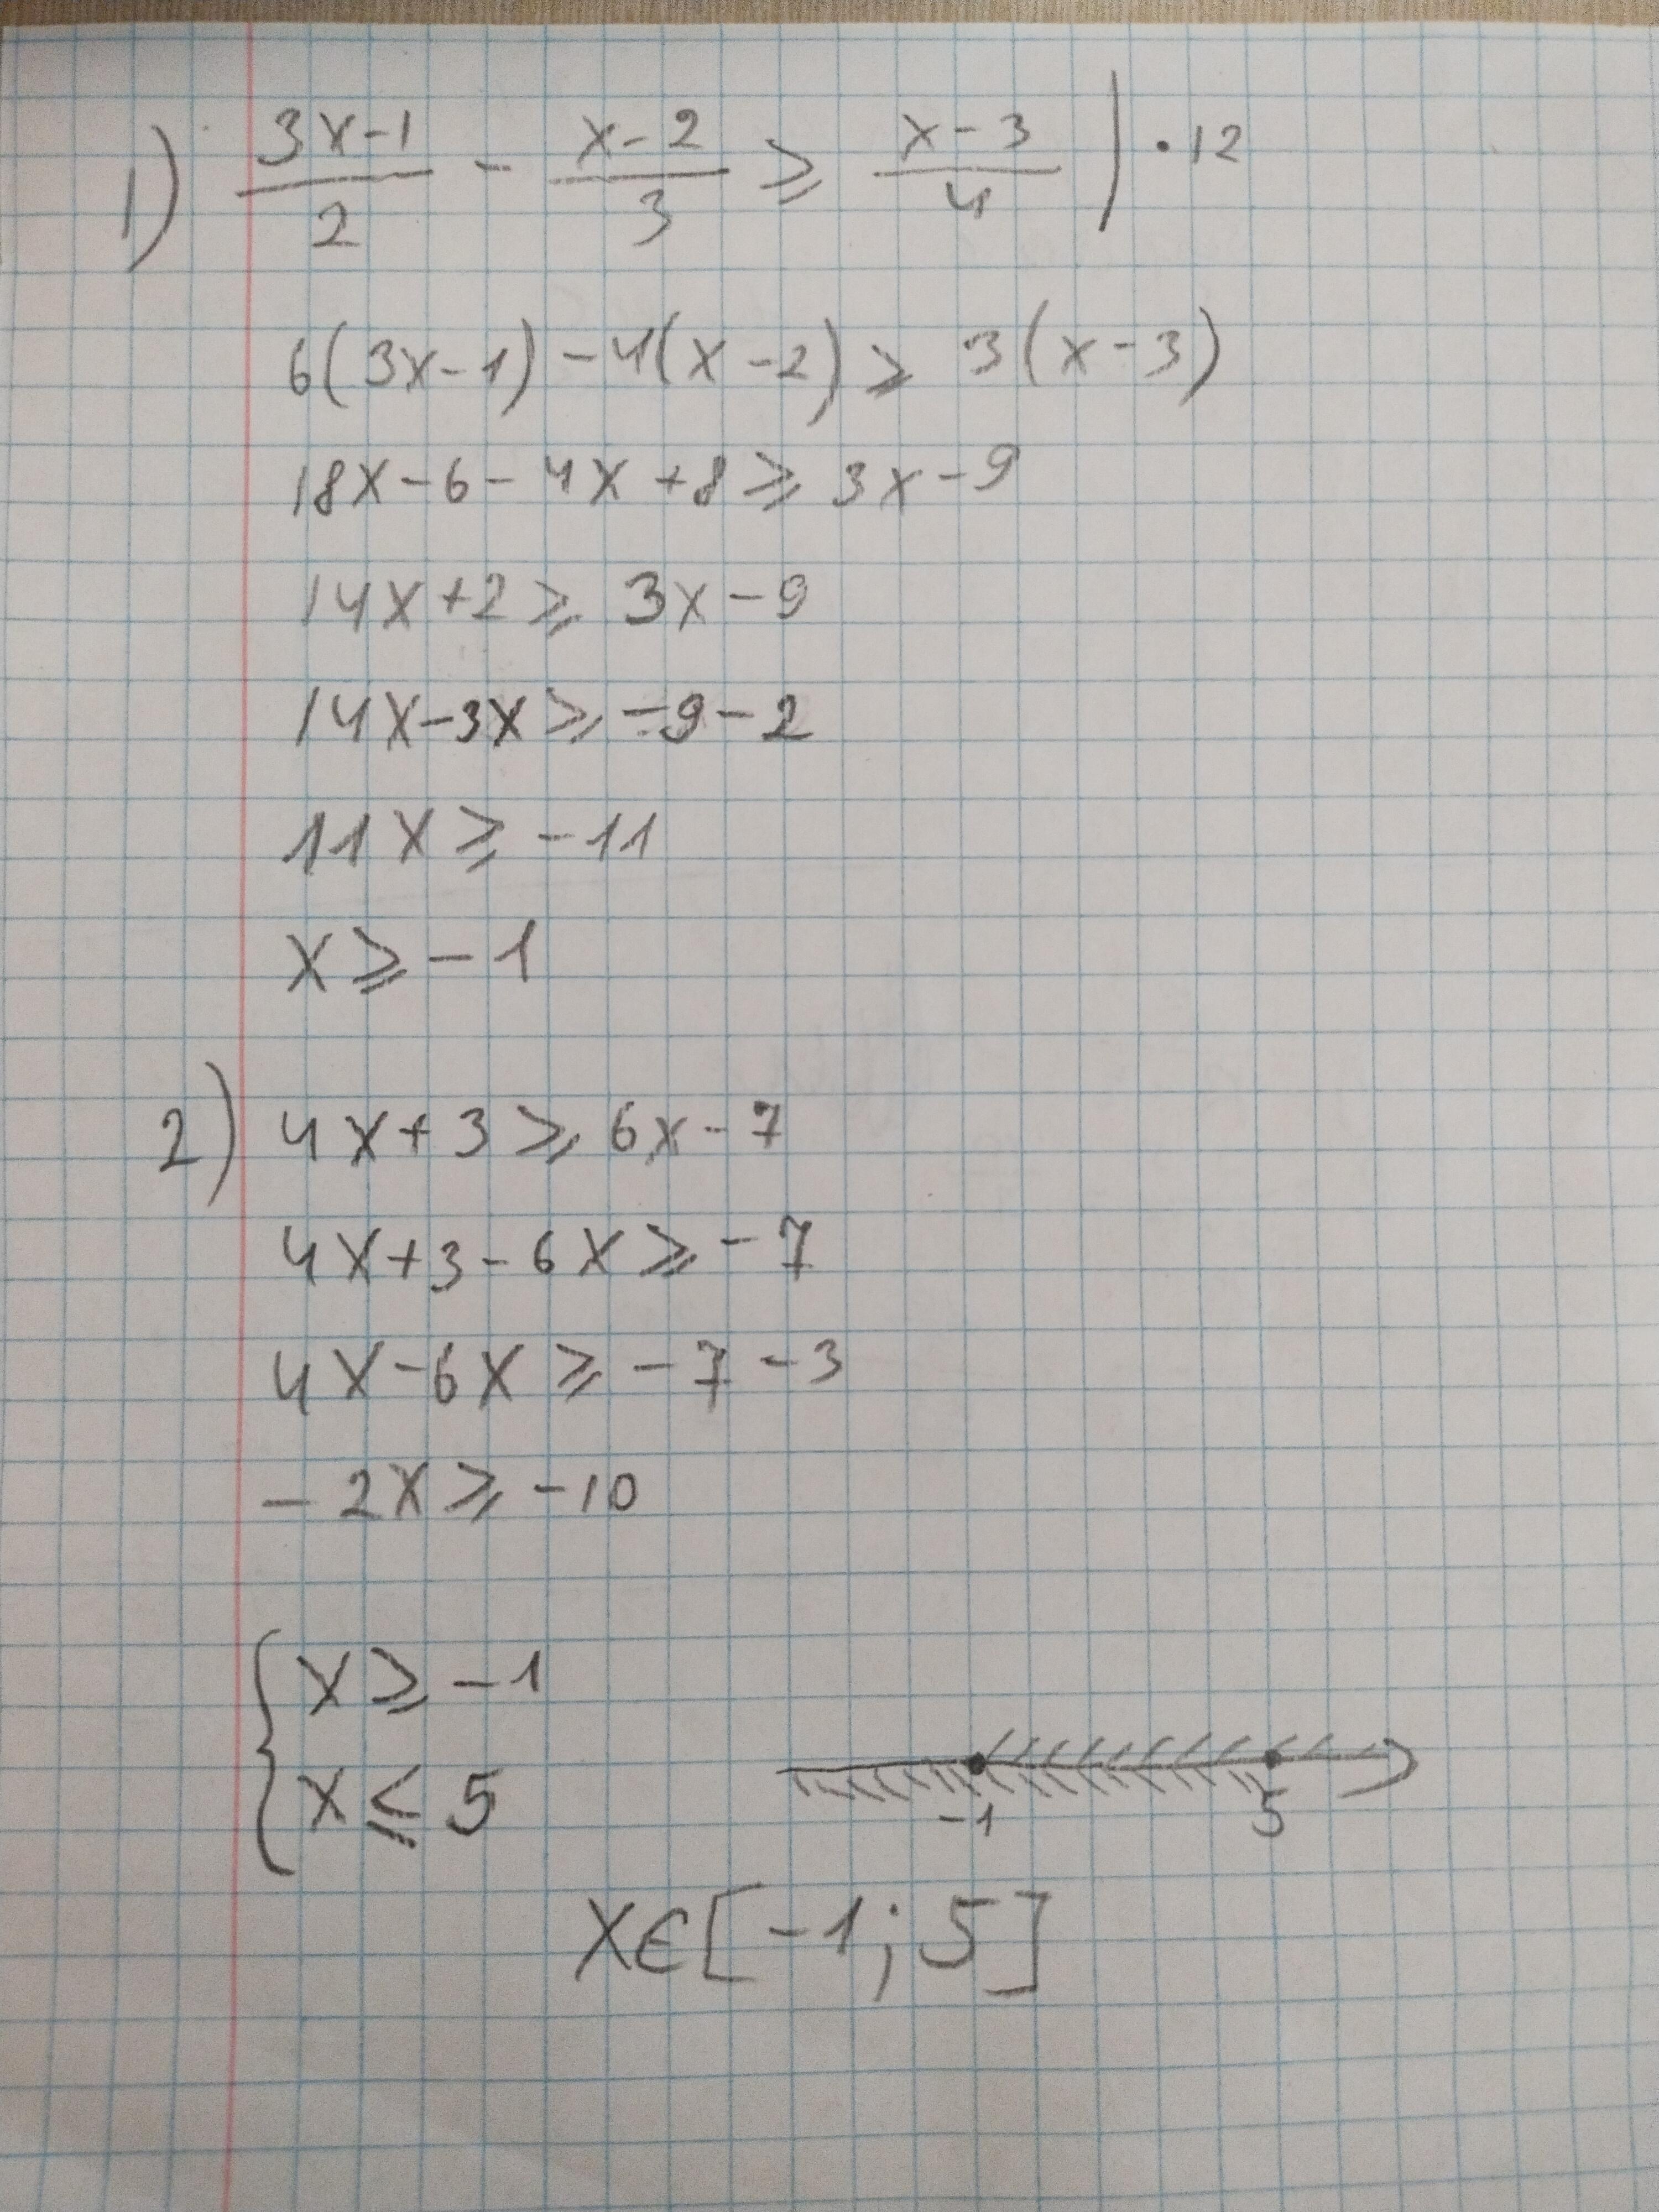 1) (3x-1)/2 - (x-2)/3 ⩾ (x-3)/4 | · 12
6(3x-1) -4(x-2) ⩾ 3(x-3)
18x-6-4x+8 ⩾ 3x-9
14x+2 ⩾ 3x-9
14x-3x ⩾ -9-2
11x ⩾ -11
x ⩾ -1
2) 4x+3 ⩾ 6x-7
4x+3-6x ⩾ -7
4x-6x ⩾ -7-3
-2x ⩾ -10
{ x ⩾ -1
x ⩽ 5
-1 5
x∈[-1;5]